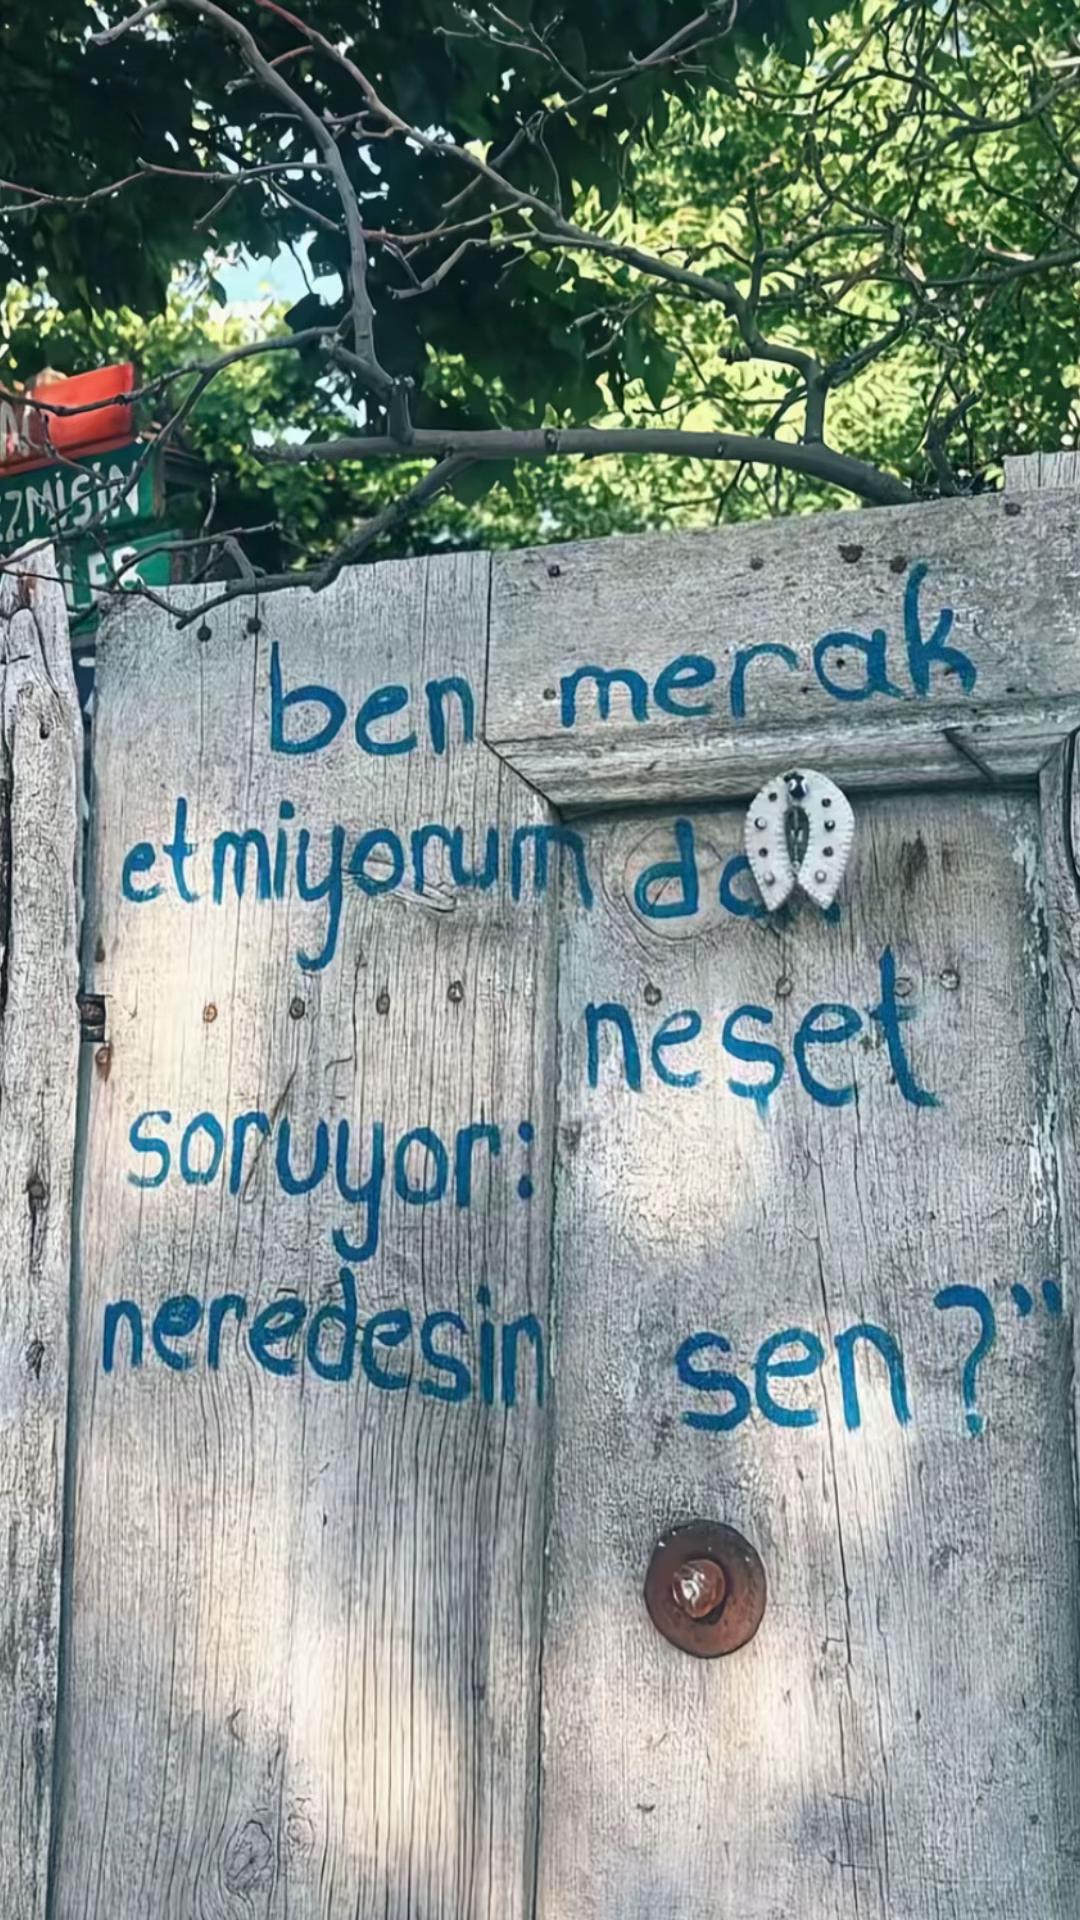 EZMİSİN
ben merak
etmiyorum
neşet
soruyor:
neredesin sen?"